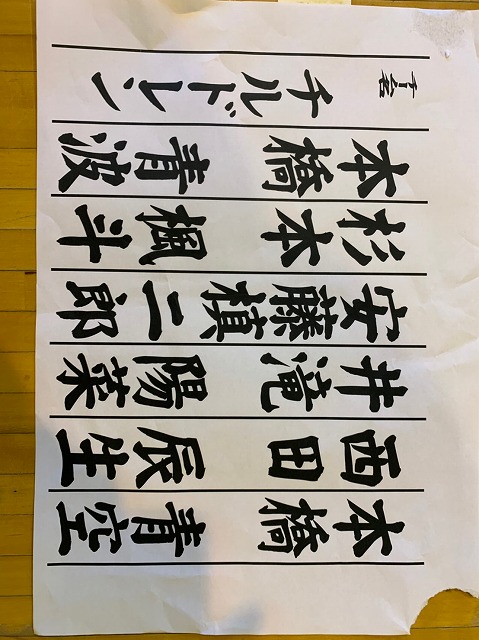 チルドレン
本橋 青波
杉本 楓斗
安藤 槙二郎
井滝 陽菜
西田 辰生
本橋 青空